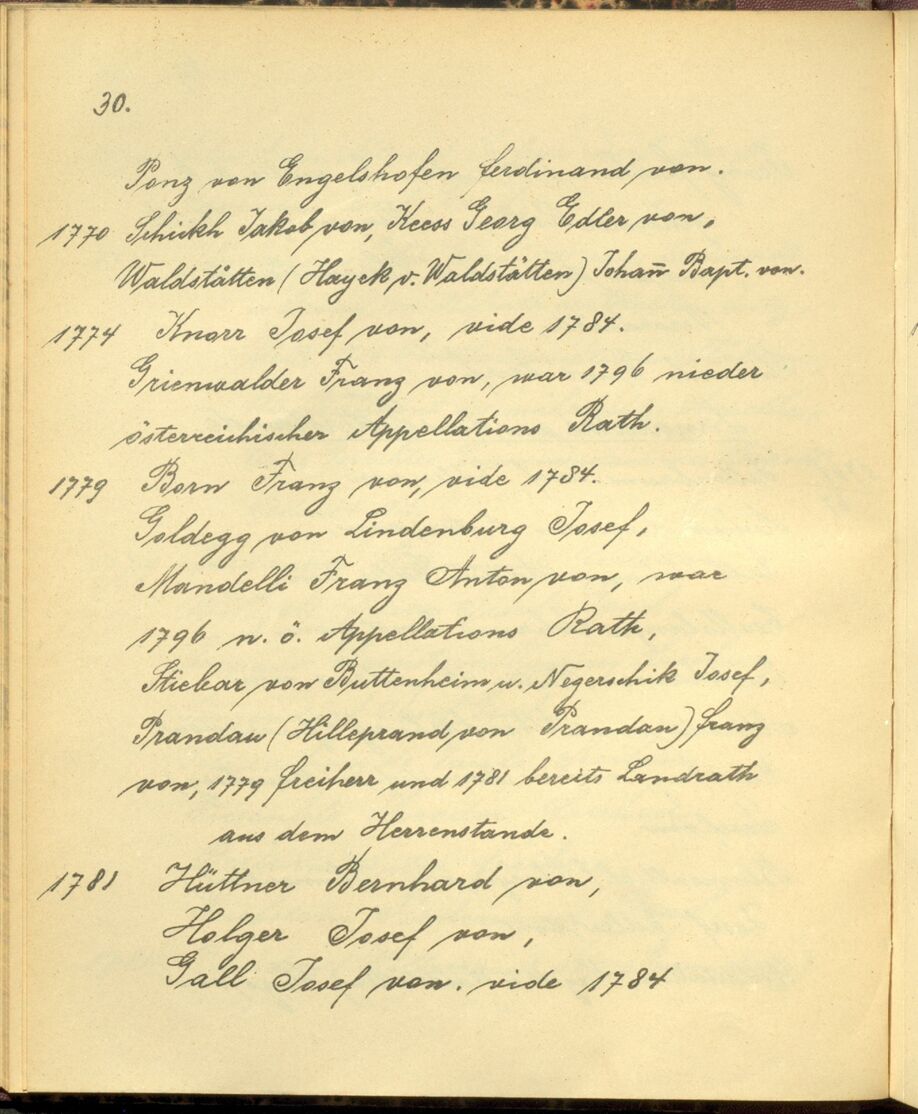 30.
Ponz von Engelshofen Ferdinand von.
1770 Schickh Jakob von, Keess Georg Edler von,
Waldstätten (Hayek v. Waldstätten) Johan̄ Bapt. von.
1774 Knorr Josef von, vide 1784.
Grienwalder Franz von, war 1796 nieder
österreichischer Appellations Rath.
1779 Born Franz von, vide 1784.
Goldegg von Lindenburg Josef,
Mandelli Franz Anton von, war
1796 n. ö. Appellations Rath,
Stiebar von Buttenheim u. Negerschik Josef,
Prandau (Hilleprand von Prandau) Franz
von, 1779 Freiherr und 1781 bereits Landrath
aus dem Herrenstande.
1781 Hüttner Bernhard von,
Holger Josef von,
Gall Josef von. vide 1784